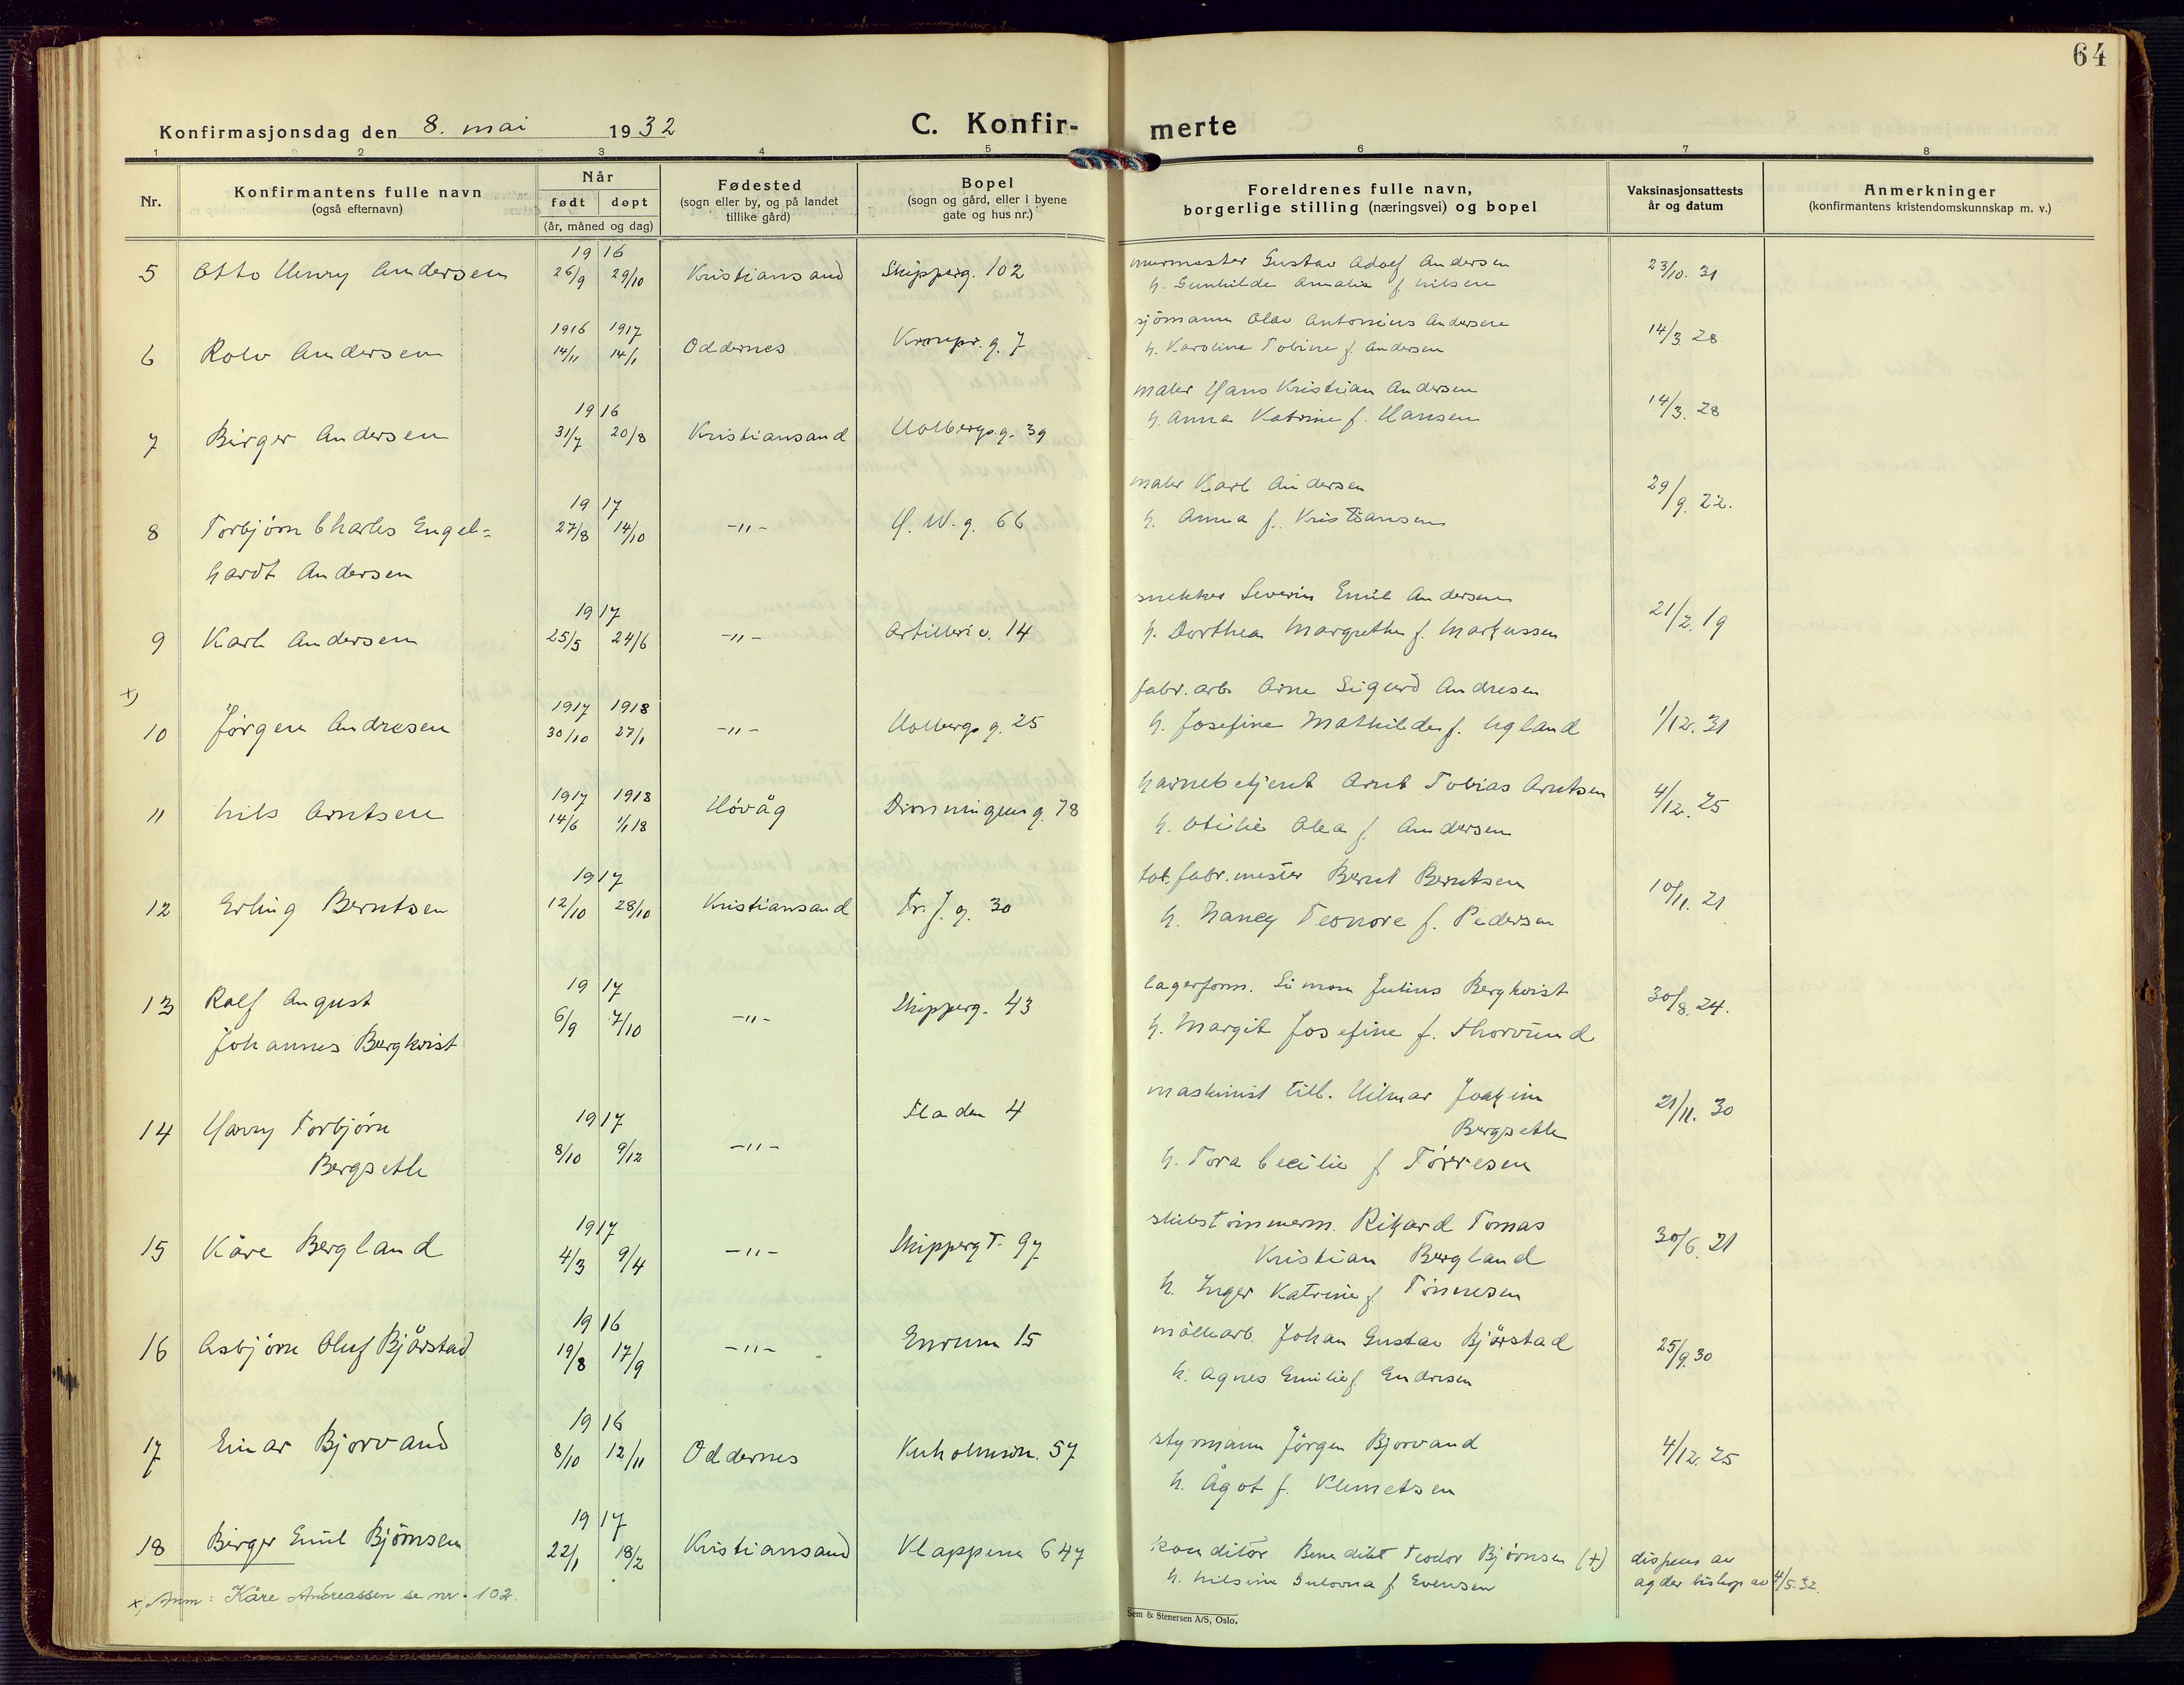 64
Konfirmasjonsdag den 8. mai 1932
C. Konfir- merte
1 2 3 4 5 6 7 8
Nr.
Konfirmantens fulle navn
(også efternavn)
Når
født døpt
(år, måned og dag)
Fødested
(sogn eller by, og på landet
tillike gård)
Bopel
(sogn og gård, eller i byene
gate og hus nr.)
Foreldrenes fulle navn,
borgerlige stilling (næringsvei) og bopel
Vaksinasjonsattests
år og datum
Anmerkninger
(konfirmantens kristendomskunnskap m. v.)
19 16
5 Otto Henry Andersen 26/9 29/10 Kristiansand Skipperg. 102 murmester Gustav Adolf Andersen 23/10. 31
h. Gunhilde Amalie f. Nilsen
1916 1917
6 Rolv Andersen 14/11 14/1 Oddernes Kronpr. g. 7 sjömann Olav Antonius Andersen 14/3 28
h. Karoline Tobine f. Andersen
19 16
7 Birger Andersen 31/7 20/8 Kristiansand Holbergs.g. 39 maler Hans Kristian Andersen 14/3. 28
h. Anna Katrine f. Hansen
19 17
8 Torbjørn Charles Engel= 27/8 14/10 -"- H. W. g. 66 maler Karl Andersen 29/9. 22.
hardt Andersen h. Anna f. Kristiansen
19 17
9 Karl Andersen 25/5 24/6 -"- Artilleriv. 14 snekker Severin Emil Andersen 21/2. 19
h. Dorthea Margrethe f. Markussen
x)
1917 1918
10 Jørgen Andresen 30/10 27/1 -"- Holbergs g. 25 fabr. arb. Arne Sigurd Andresen 1/12. 31
h. Josefine Mathilde f. Ugland
1917 1918
11 Nils Arntsen 14/6 1/1 18 Høvåg Dronningens g. 78 havnebetjent Arnt Tobias Arntsen 4/12. 25
h. Otilie Olea f. Andersen
19 17
12 Erling Berntsen 12/10 28/10 Kristiansand Tr. f. g. 30 tob. fabr. mester Bernt Berntsen 10/11. 21
h. Nancy Teonore f. Pedersen
19 17
13 Ralf August 6/9 7/10 -"- Skipperg. 43 lagerform. Simon Julius Bergkvist 30/8. 24.
Johannes Bergkvist h. Margit Josefine f.
19 17
14 Harry Torbjørn 8/10 9/12 -"- Fladen 4 maskinist till. Hilmar Joakim 21/11. 30
Bergseth Bergseth
h. Tora Cecilie f. Tørresen
19 17
15 Kåre Bergland 4/3 9/4 -"- Skippergt. 97 skibstömmerm. Rikard Tomas 30/6. 21
Kristian Bergland
h. Inger Katrine f. Tønnesen
19 16
16 Asbjørn Oluf Bjårstad 19/8 17/9 -"- Enrum 15 møllearb. Johan Gustav Bjårstad 25/9. 30
h. Agnes Emilie f. Endresen
19 16
17 Einar Bjorvand 8/10 12/11 Oddernes Kuholmsv. 57 styrmann Jörgen Bjorvand 4/12. 25
h. Ågot f. Klemetsen
19 17
18 Birger Emil Bjørnsen 22/1 18/2 Kristiansand Klappene 647 konditor Benedikt Teodor Bjørnsen (+) dispens av
h. Nilsine f. Evensen agder biskop av 4/5. 32.
x) Anm: Kåre Andreassen se nr. 102.
Sem & Stenersen A/S, Oslo.